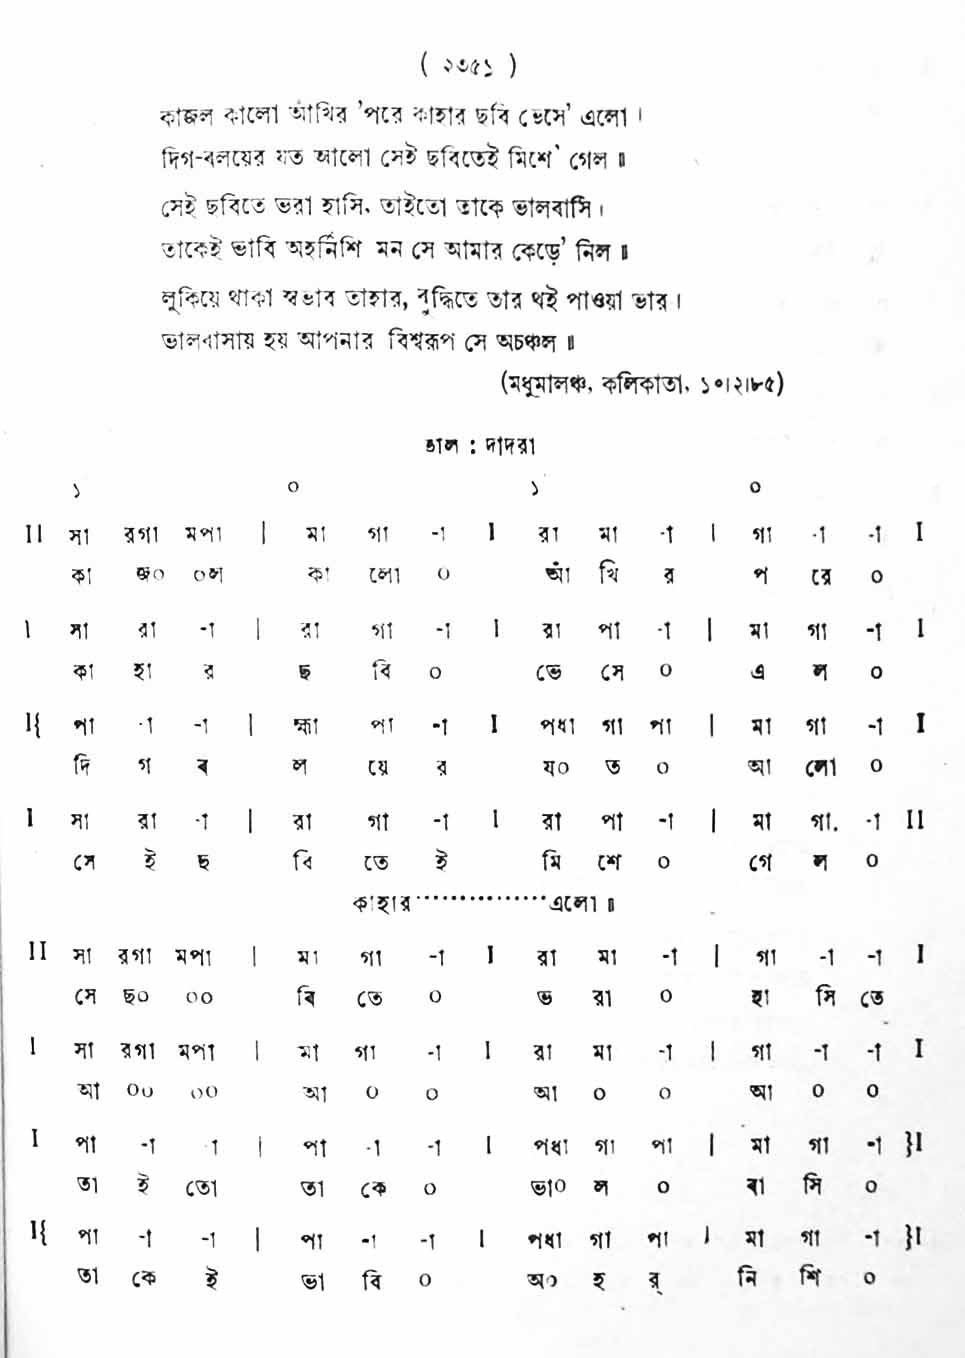 ( ২৩৫১ )
কাজল কালো আঁখির 'পরে কাহার ছবি ভেসে' এলো ।
দিগ-বলয়ের যত আলো সেই ছবিতেই মিশে' গেল ॥
সেই ছবিতে ভরা হাসি, তাইতো তাকে ভালবাসি ।
তাকেই ভাবি অহর্নিশি মন সে আমার কেড়ে' নিল ॥
লুকিয়ে থাকা স্বভাব তাহার, বুদ্ধিতে তার থই পাওয়া ভার ।
ভালবাসায় হয় আপনার বিশ্বরূপ সে অচঞ্চল ॥
(মধুমালঞ্চ, কলিকাতা, ১০।২।৮৫)
তাল : দাদরা
১ ০ ১ ০
II সা রগা মপা | মা গা -া I রা মা -া | গা -া -া I
কা জ০ ০ল কা লো ০ আঁ খি র প রে ০
I সা রা -া | রা গা -া I রা পা -া | মা গা -া I
কা হা র ছ বি ০ ভে সে ০ এ ল ০
I{ পা -া -া | হ্মা পা -া I পধা গা পা | মা গা -া I
দি গ ব ল য়ে র য০ ত ০ আ লো ০
I সা রা -া | রা গা -া I রা পা -া | মা গা. -া II
সে ই ছ বি তে ই মি শে ০ গে ল ০
কাহার ............... এলো ॥
II সা রগা মপা | মা গা -া I রা মা -া | গা -া -া I
সে ছ০ ০০ বি তে ০ ভ রা ০ হা সি তে
I সা রগা মপা | মা গা -া I রা মা -া | গা -া -া I
আ ০০ ০০ আ ০ ০ আ ০ ০ আ ০ ০
I পা -া -া | পা -া -া I পধা গা পা | মা গা -া }I
তা ই তো তা কে ০ ভা০ ল ০ বা সি ০
I{ পা -া -া | পা -া -া I পধা গা পা | মা গা -া }I
তা কে ই ভা বি ০ অ০ হ র্ নি শি ০